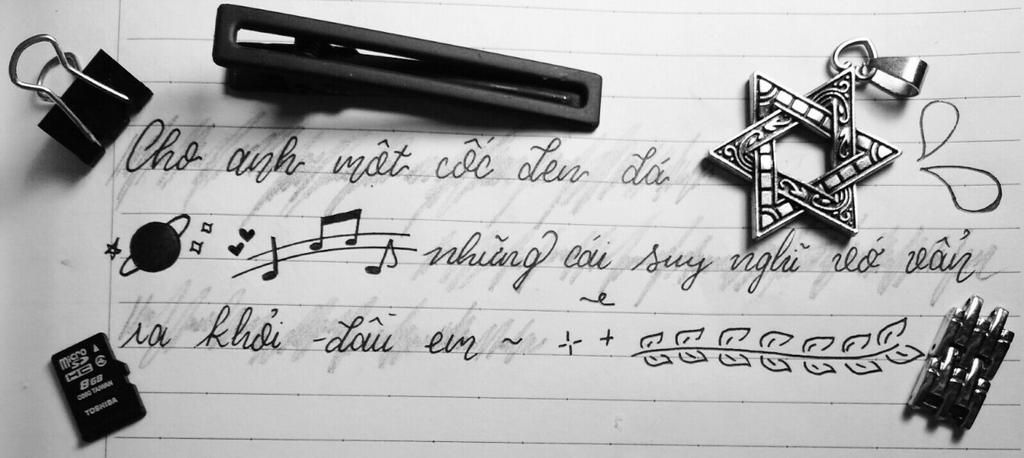 Cho anh một cốc đen đá
những cái suy nghĩ vớ vẩn
ra khỏi đầu em ~
micro SD
HC
8GB
TAIWAN
TOSHIBA